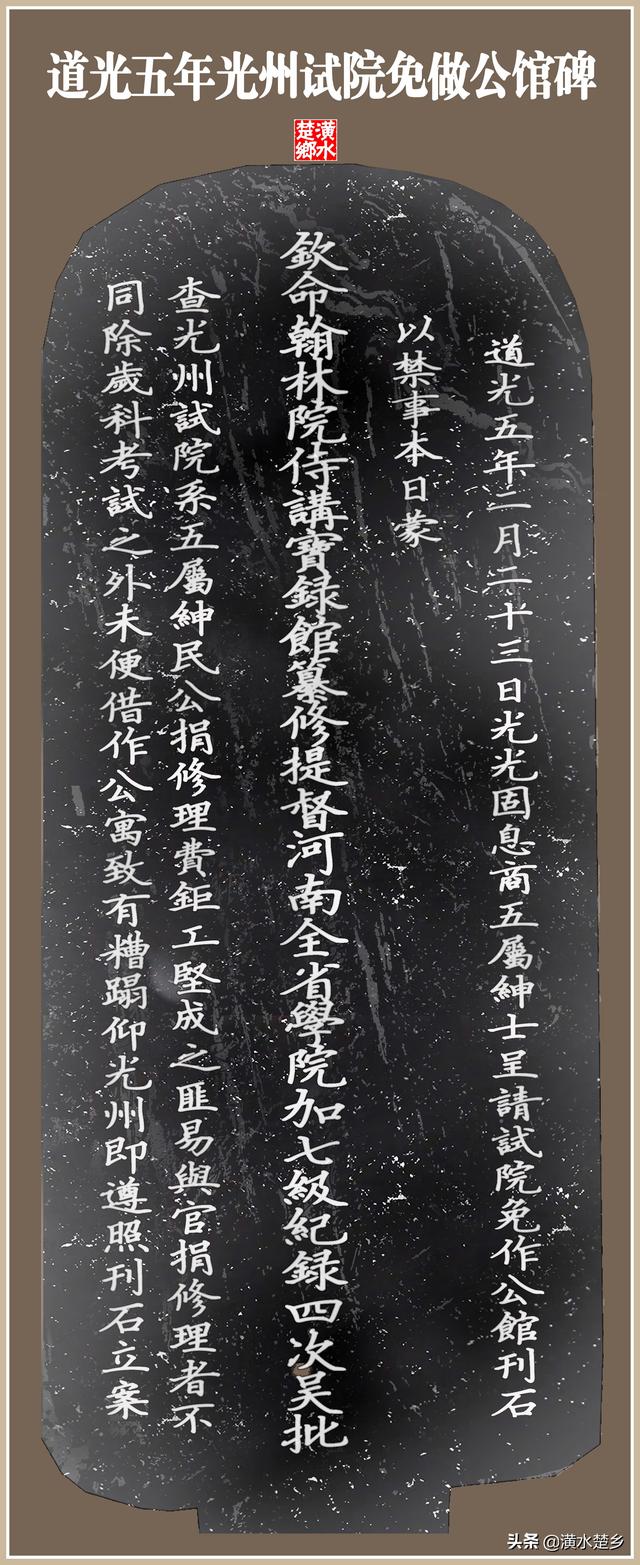 道光五年光州试院免做公馆碑
潢水
楚鄉
道光五年二月二十三日光光固息商五屬紳士呈請試院免作公館刊石
以禁事本日蒙
欽命翰林院侍講寶録館纂修提督河南全省學院加七級紀録四次吴批
查光州試院系五屬紳民公捐修理費鉅工堅成之匪易與官捐修理者不
同除歲科考試之外未便借作公寓致有糟蹋仰光州即遵照刊石立案
头条 @潢水楚乡